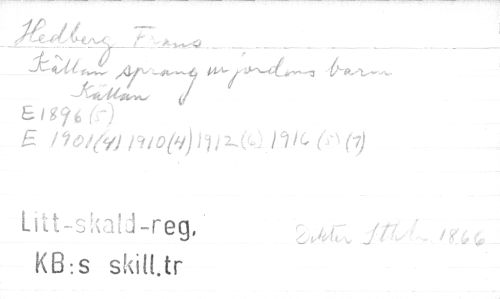 Hedberg Frans
Källan sprang ur jordens barm
Källan
E 1896 (5)
E 1901(4) 1910(4) 1912(6) 1916(5)(7)
Litt-skald-reg.
KB:s skill.tr
Dikter Sthlm 1866